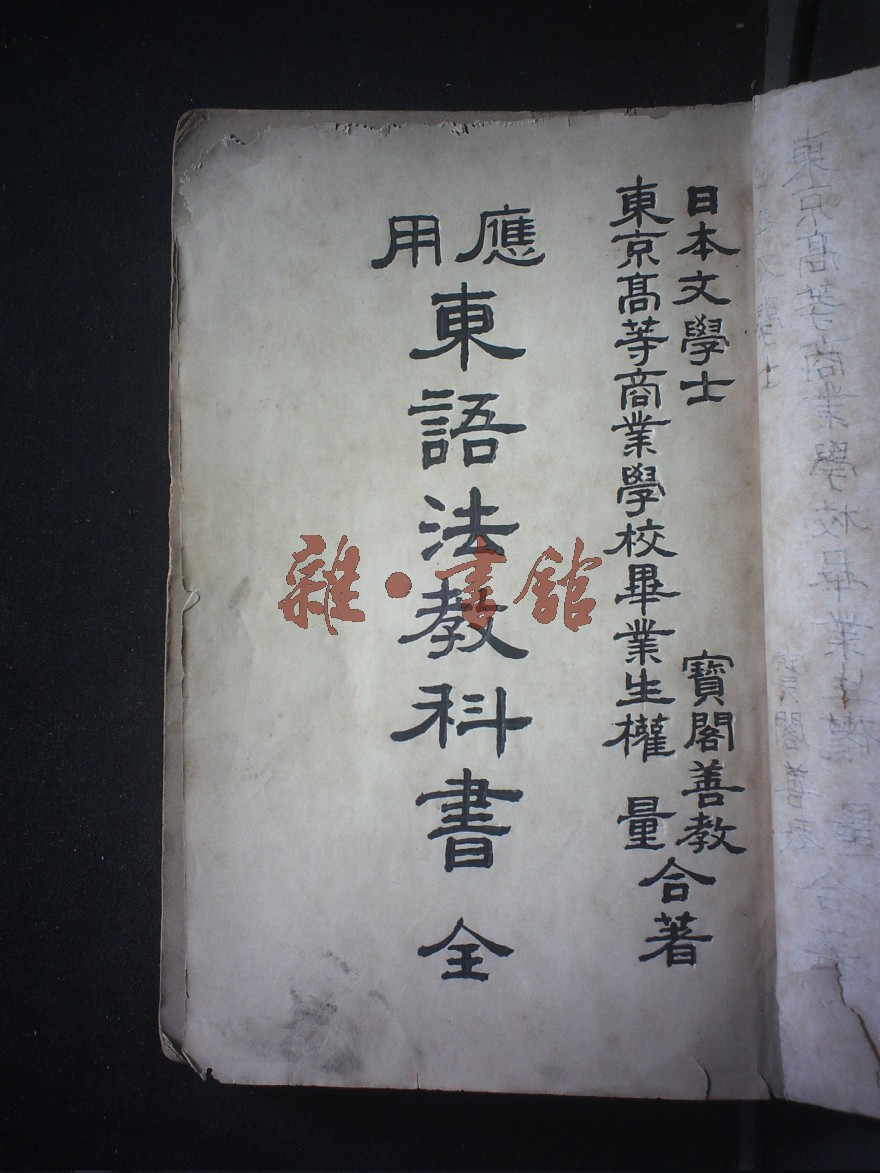 日本文學士 寶閣善教
東京高等商業學校畢業生權 量
合著
應用
東語法教科書 全
雜·書館